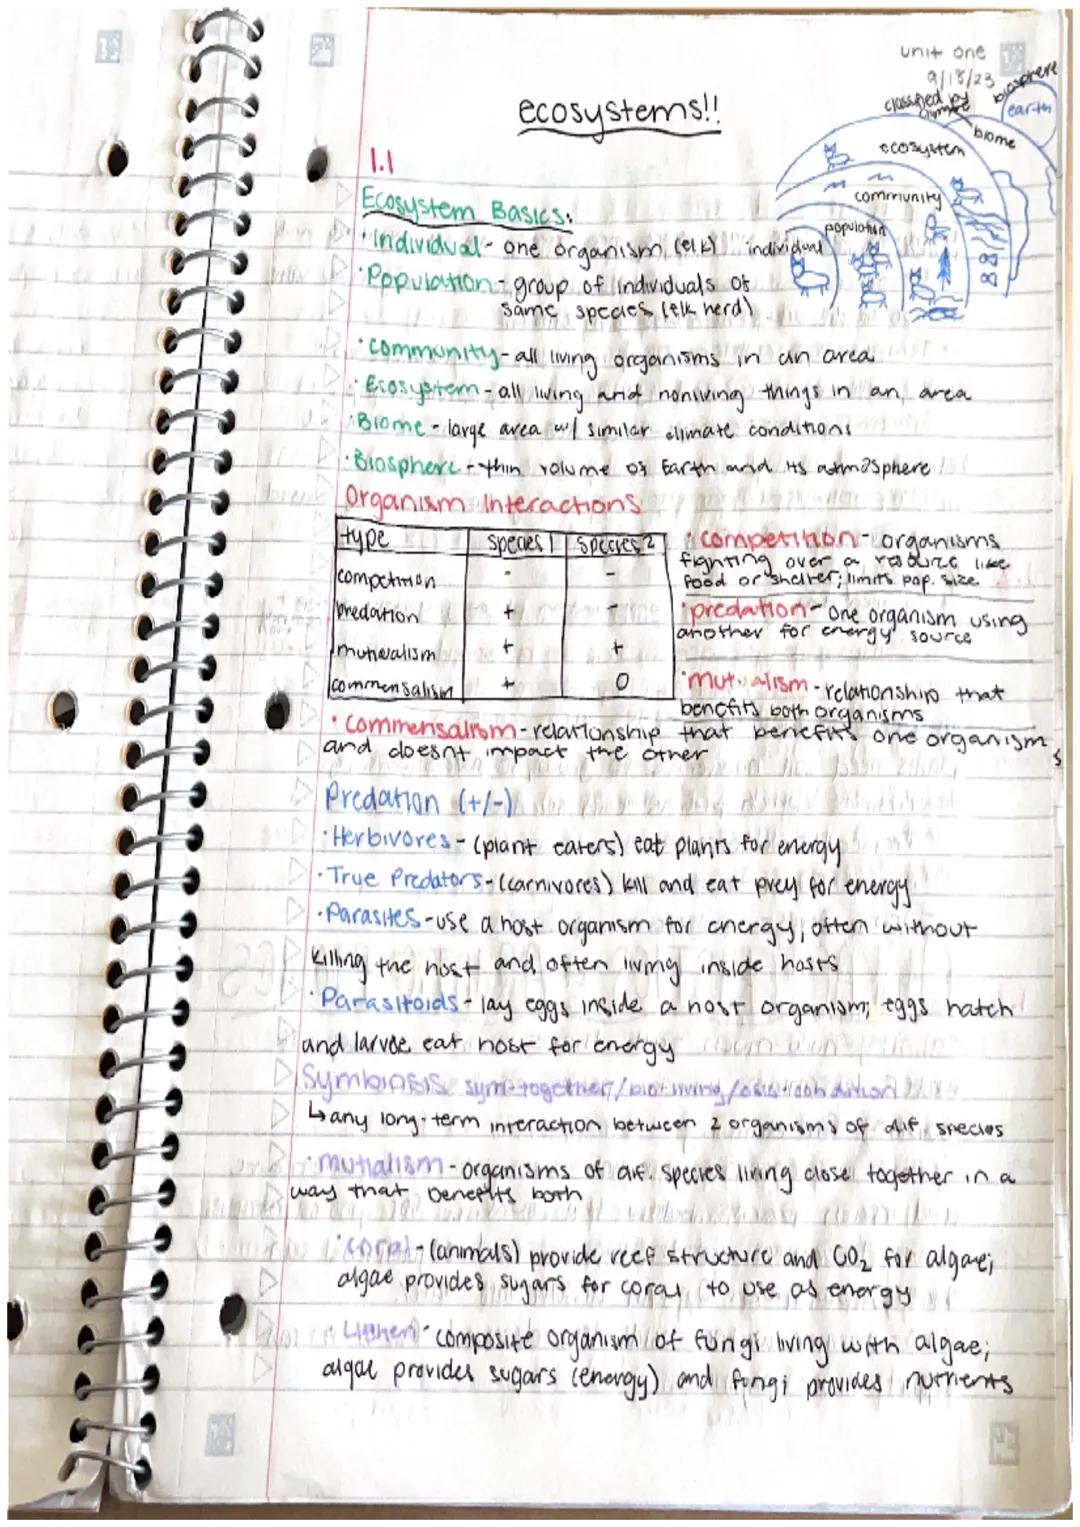 unit one
9/18/23
ecosystems!!
classified by climate
biosphere
earth
biome
ecosystem
community
population
individual
1.1
Ecosystem Basics:
· Individual - one organism (elk)
· Population - group of individuals of
same species (elk herd)
· Community - all living organisms in an area
· Ecosystem - all living and nonliving things in an area
· Biome - large area w/ similar climate conditions
· Biosphere - thin volume of Earth and its atmosphere
Organism Interactions
type species 1 species 2
competition - -
predation + -
mutualism + +
commensalism + 0
· competition - organisms
fighting over a resource like
food or shelter; limits pop. size
· predation - one organism using
another for energy source
· mutualism - relationship that
benefits both organisms
· Commensalism - relationship that benefits one organism
and doesnt impact the other
Predation (+/-)
· Herbivores - (plant eaters) eat plants for energy
· True Predators - (carnivores) kill and eat prey for energy
· Parasites - use a host organism for energy, often without
killing the host and often living inside hosts
· Parasitoids - lay eggs inside a host organism; eggs hatch
and larvae eat host for energy
Symbiosis sym-together/bio-living/osis-condition
↳ any long-term interaction between 2 organisms of dif. species
· mutialism - organisms of dif. species living close together in a
way that benefits both
· coral - (animals) provide reef structure and CO₂ for algae;
algae provides sugars for coral to use as energy
· Lichen - composite organism of fungi living with algae;
algae provides sugars (energy) and fungi provides nutrients